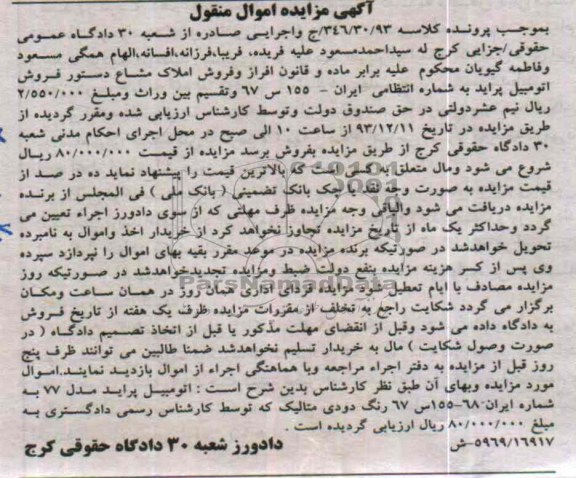 آگهی مزایده اموال منقول
بموجب پرونده کلاسه ۳۴۶/۳۰/۹۳/ج واجرایی صادره از شعبه ۳۰ دادگاه عمومی
حقوقی/جزایی کرج له سیداحمدمسعود علیه فریده، فریبا،فرزانه،افسانه،الهام همگی مسعود
وفاطمه گیویان محکوم علیه برابر ماده و قانون افراز وفروش املاک مشاع دستور فروش
اتومبیل پراید به شماره انتظامی ایران - ۱۵۵ س ۶۷ وتقسیم بین وراث ومبلغ ۲/۵۵۰/۰۰۰
ریال نیم عشردولتی در حق صندوق دولت وتوسط کارشناس ارزیابی شده ومقرر گردیده از
طریق مزایده در تاریخ ۹۳/۱۲/۱۱ از ساعت ۱۰ الی صبح در محل اجرای احکام مدنی شعبه
۳۰ دادگاه حقوقی کرج از طریق مزایده بفروش برسد مزایده از قیمت ۸۰/۰۰۰/۰۰۰ ریال
شروع می شود ومال متعلق به کسی است که بالاترین قیمت را پیشنهاد نماید ده در صد از
قیمت مزایده به صورت وجه نقد یا چک بانک تضمینی ( بانک ملی ) فی المجلس از برنده
مزایده دریافت می شود والباقی وجه مزایده ظرف مهلتی که از سوی دادورز اجراء تعیین می
گردد وحداکثر یک ماه از تاریخ مزایده تجاوز نخواهد کرد از خریدار اخذ واموال به نامبرده
تحویل خواهدشد در صورتیکه برنده مزایده در موعد مقرر بقیه بهای اموال را نپردازد سپرده
وی پس از کسر هزینه مزایده بنفع دولت ضبط ومزایده تجدیدخواهدشد در صورتیکه روز
مزایده مصادف با ایام تعطیل شود مزایده فردای اداری همان روز در همان ساعت ومکان
برگزار می گردد شکایت راجع به تخلف از مقررات مزایده ظرف یک هفته از تاریخ فروش
به دادگاه داده می شود وقبل از انقضای مهلت مذکور یا قبل از اتخاذ تصمیم دادگاه ( در
صورت وصول شکایت ) مال به خریدار تسلیم نخواهدشد ضمنا طالبین می توانند ظرف پنج
روز قبل از مزایده به دفتر اجراء مراجعه وبا هماهنگی اجراء از اموال بازدید نمایند.اموال
مورد مزایده وبهای آن طبق نظر کارشناس بدین شرح است : اتومبیل پراید مدل ۷۷ به
شماره ایران-۶۸-۱۵۵س ۶۷ رنگ دودی متالیک که توسط کارشناس رسمی دادگستری به
مبلغ ۸۰/۰۰۰/۰۰۰ ریال ارزیابی گردیده است .
۵۹۶۹/۱۶۹۱۷-ش
دادورز شعبه ۳۰ دادگاه حقوقی کرج
ParsNamadData